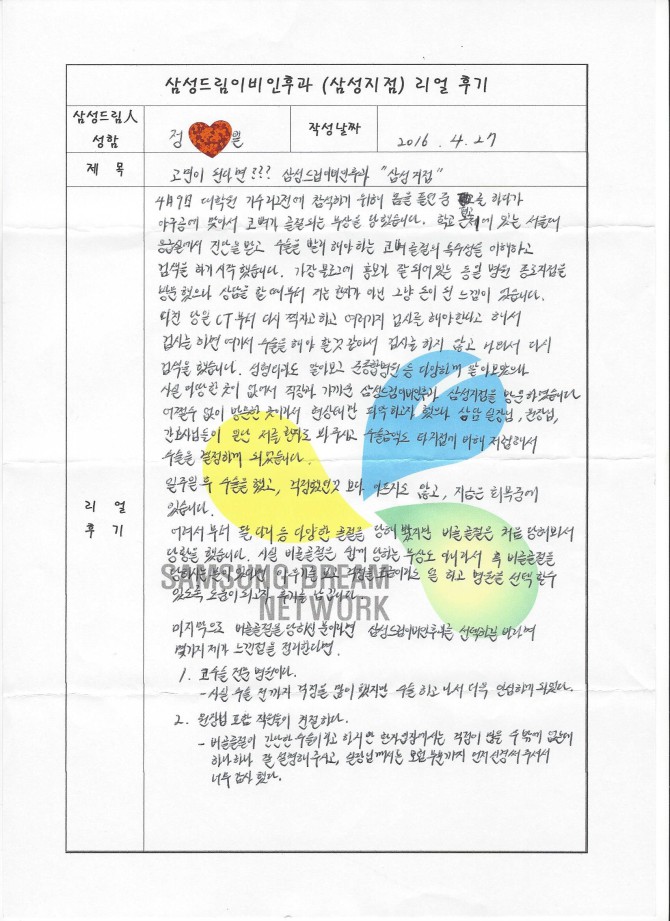 삼성드림이비인후과 (삼성지점) 리얼 후기
삼성드림人
성함
정 월
작성날짜
2016. 4. 27
제 목
고민이 된다면??? 삼성드림이비인후과 "삼성지점"
리 얼
후 기
4월 9일 대학원 가수리그전에 참석하기 위해 몸을 풀던 중 를 하다가
야구공에 맞아서 코뼈가 골절되는 부상을 당했습니다. 학교 에 있는 서울대
응급실에서 진단을 받고 수술을 받기 해야 하는 코뼈 골절의 특수성을 이해하고
검색을 하기 시작했습니다. 가장 블로그에 홍보가 잘 되어있는 동일 병원 종로지점을
방문 했으나 상담을 할 때부터 저는 환자가 아닌 그냥 돈이 된 느낌이 있습니다.
당일 CT부터 다시 찍자고 하고 여러가지 검사를 해야한다고 해서
검사를 하면 여기서 수술을 해야 할것 같아서 검사를 하지 않고 나와서 다시
검색을 했습니다. 성형외과도 알아보고 준종합병원 등 다양하게 알아보았으나
사실 마땅한 곳이 없어서 직장과 가까운 삼성드림이비인후과 삼성지점을 방문하였습니다
어쩔수 없이 방문한 곳이라서 현상태만 파악하고자 했으나 상담 원장님, 원장님,
간호사님들이 일단 저를 환자로 봐 주시고 수술금액도 타지점에 비해 저렴해서
수술을 결정하게 되었습니다.
일주일 후 수술을 했고, 걱정했던것 보다 아프지도 않고, 지금은 회복중에
있습니다.
어려서부터 팔, 다리 등 다양한 골절을 당해 봤지만 비골 골절은 처음 당해봐서
당황을 했습니다. 사실 비골골절은 쉽게 당하는 부상도 아니라서 혹 비골골절을
당하시는 분이 있다면 이 후기를 보고 을 하고 병원을 선택 할수
있도록 도움이 되고자 후기를 남깁니다.
마지막으로 비골골절을 당하신 분이라면 삼성드림이비인후과를 선택하길 바라며
몇가지 제가 느낀점을 정리한다면.
1. 코수술 전문 병원이다.
- 사실 수술 전까지 걱정을 많이 했지만 수술 하고 나서 더욱 안심하게 되었다.
2. 원장님 포함 직원들이 친절하다.
- 비골골절이 간단한 수술이라고 하시만 환자입장에서는 걱정이 많을 수 밖에 없는데
하나하나 잘 설명해 주시고, 원장님께서는 모임 부분까지 먼저 신경써 주셔서
너무 감사 했다.
SAMSUNG DREAM
NETWORK